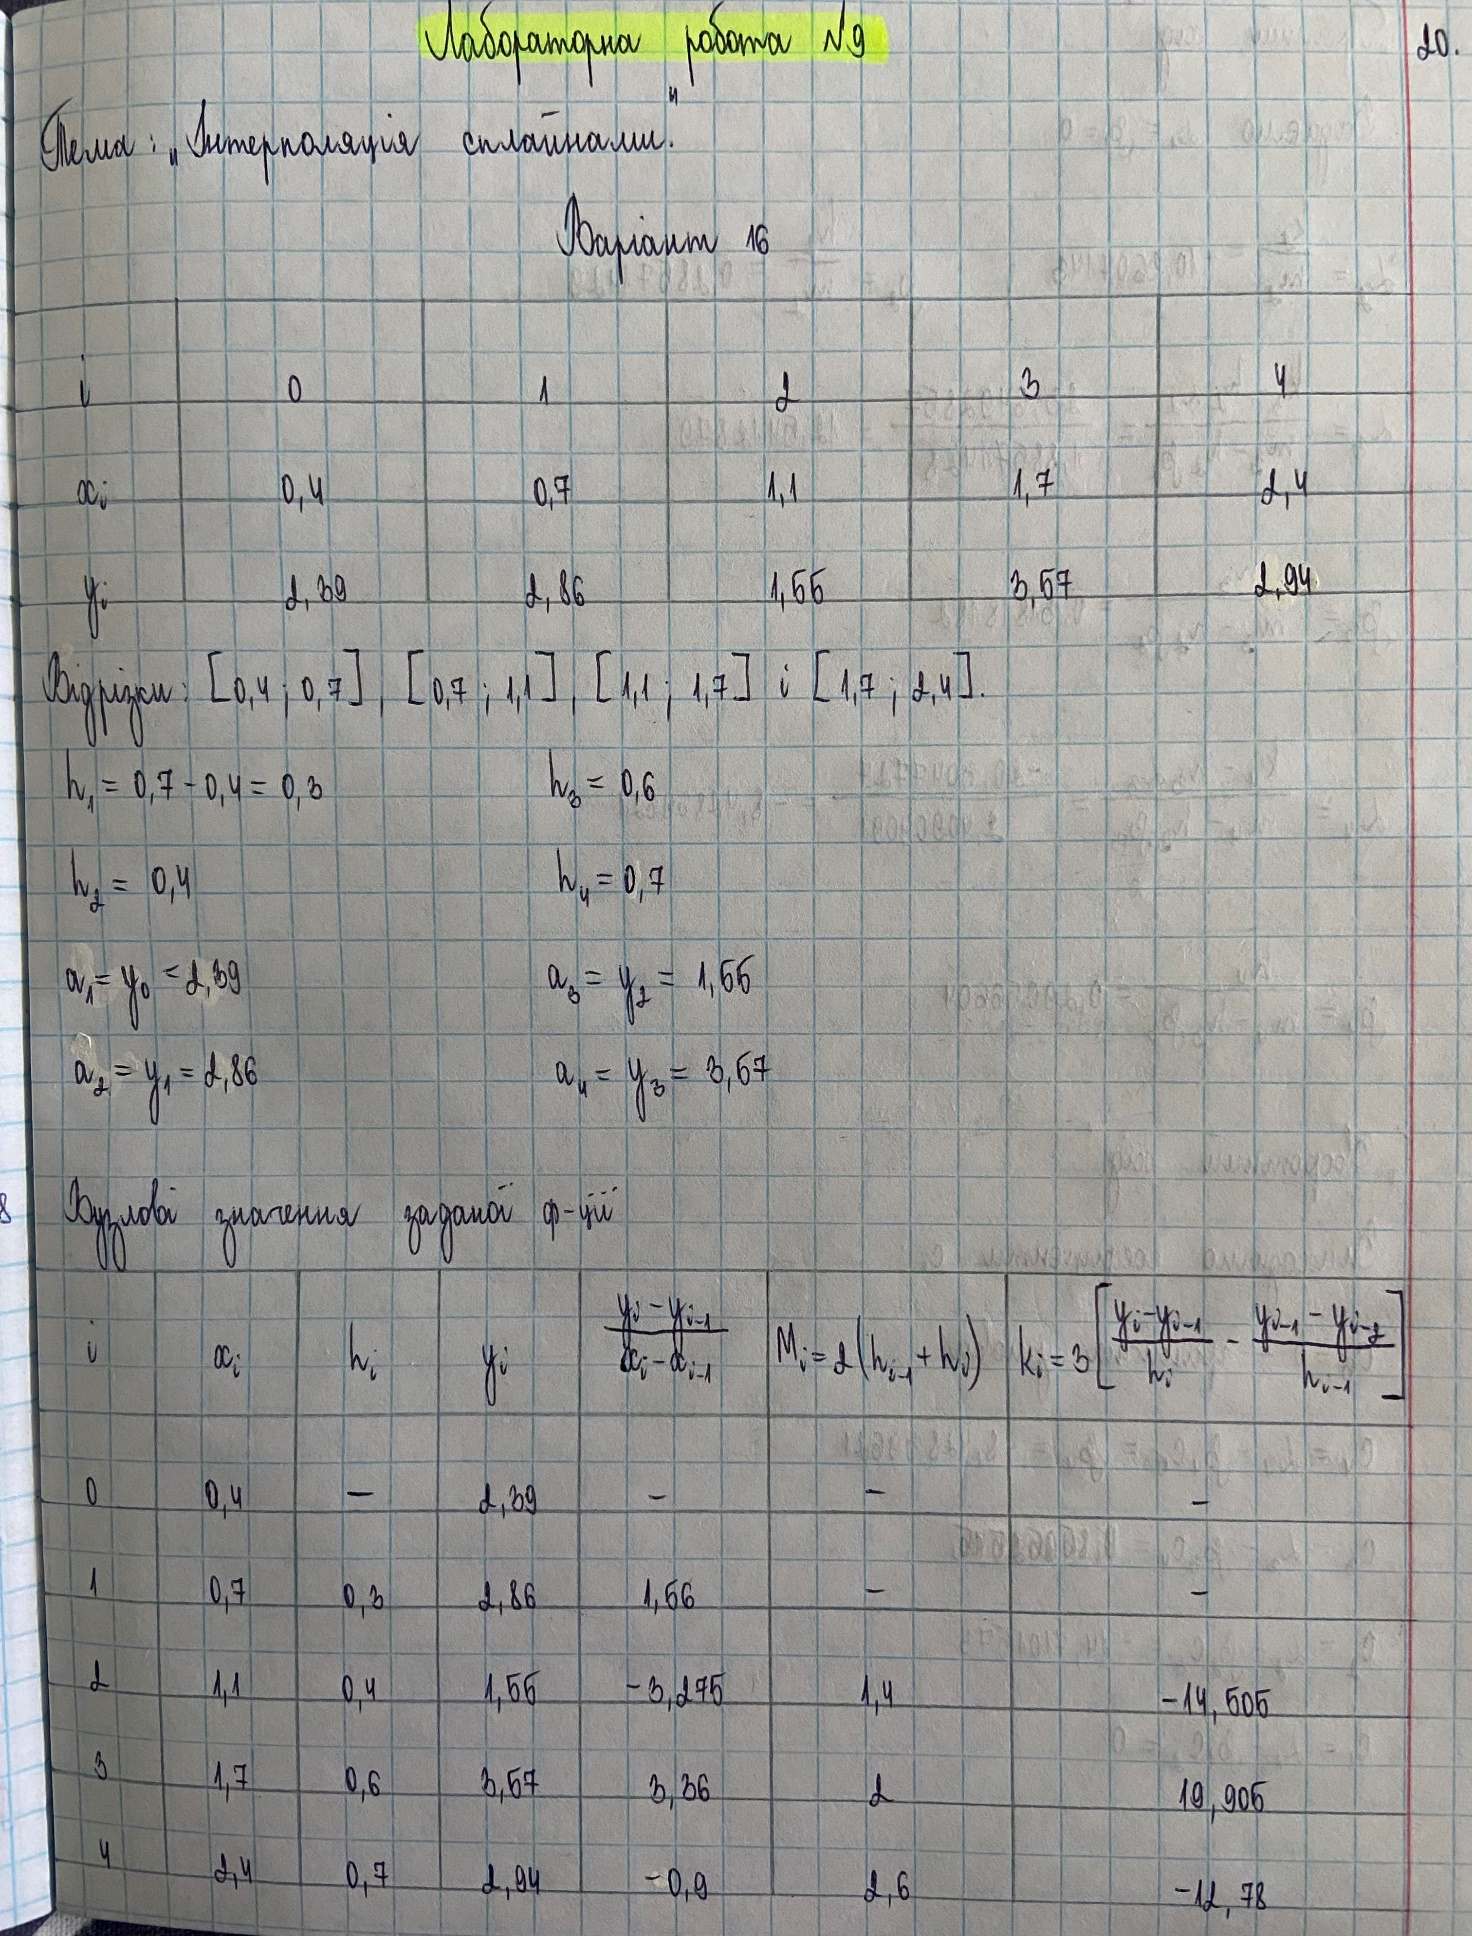 Лабораторна робота №9
20.
Тема: „Інтерполяція сплайнами."
Варіант 16
i 0 1 2 3 4
xᵢ 0,4 0,7 1,1 1,7 2,4
yᵢ 2,39 2,86 1,55 3,57 2,94
Відрізки: [0,4; 0,7], [0,7; 1,1], [1,1; 1,7] і [1,7; 2,4].
h₁ = 0,7 - 0,4 = 0,3 h₃ = 0,6
h₂ = 0,4 h₄ = 0,7
a₁ = y₀ = 2,39 a₃ = y₂ = 1,55
a₂ = y₁ = 2,86 a₄ = y₃ = 3,57
Вузлові значення заданої ф-ції
i xᵢ hᵢ yᵢ (yᵢ - yᵢ₋₁)/(xᵢ - xᵢ₋₁) Mᵢ = 2(hᵢ₋₁ + hᵢ) kᵢ = 3[(yᵢ - yᵢ₋₁)/hᵢ - (yᵢ₋₁ - yᵢ₋₂)/hᵢ₋₁]
0 0,4 - 2,39 - - -
1 0,7 0,3 2,86 1,56 - -
2 1,1 0,4 1,55 -3,275 1,4 -14,505
3 1,7 0,6 3,57 3,36 2 19,905
4 2,4 0,7 2,94 -0,9 2,6 -12,78